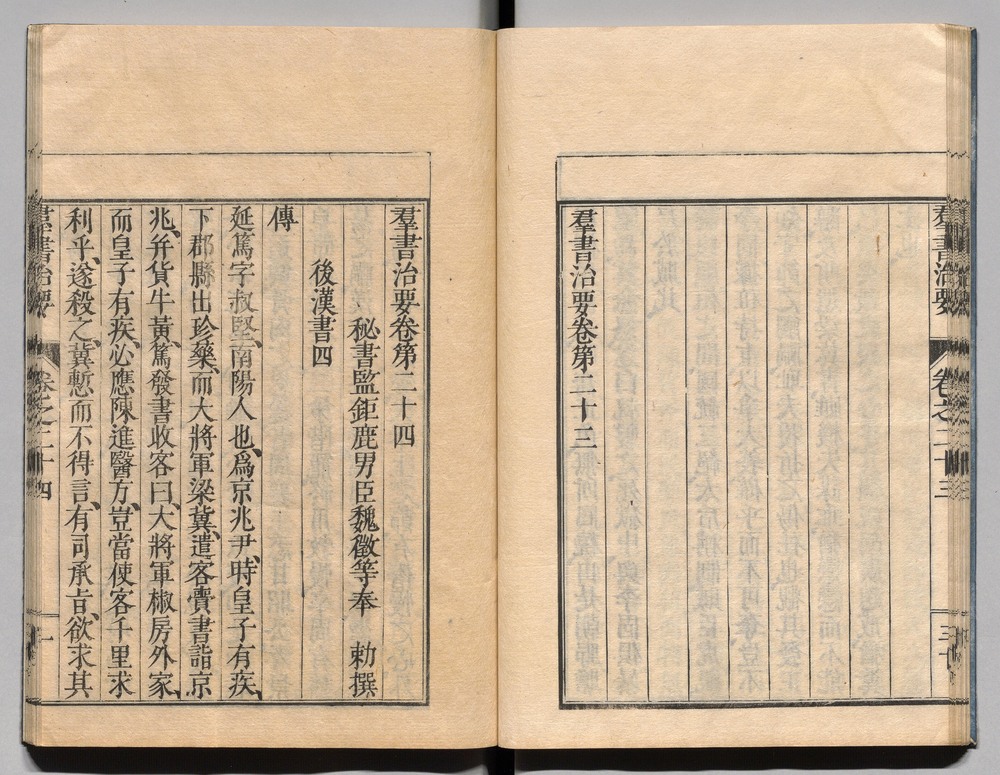 羣書治要
卷之二十三
羣書治要卷第二十三
羣書治要卷第二十四
秘書監鉅鹿男臣魏徵等奉　勅撰
後漢書四
傳
延篤字叔堅、南陽人也、爲京兆尹、時皇子有疾、
下郡縣出珍藥、而大將軍梁冀、遣客賫書詣京
兆、幷貨牛黃、篤發書收客曰、大將軍椒房外家、
而皇子有疾、必應陳進醫方、豈當使客千里求
利乎、遂殺之、冀慙而不得言、有司承旨、欲求其
羣書治要
卷之二十四
一